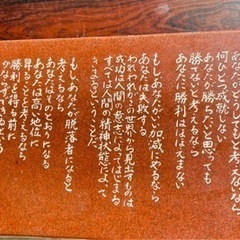 あなたがどうしても
何ひとつ成就しない
あなたが勝ちたいと思っても
勝てないと考えるなら
あなたに勝利はほほえまない
もしあなたがいい加減にやるなら
あなたは失敗する
われわれがこの世界から見出すものは
成功は人間の意志によってはじまる
すべては人間の精神状態によって
きまるということだ
もしあなたが脱落者になると
考えるなら
あなたはそのとおりになる
あなたは高い地位に
昇ることを考えるなら
勝利を得る前に